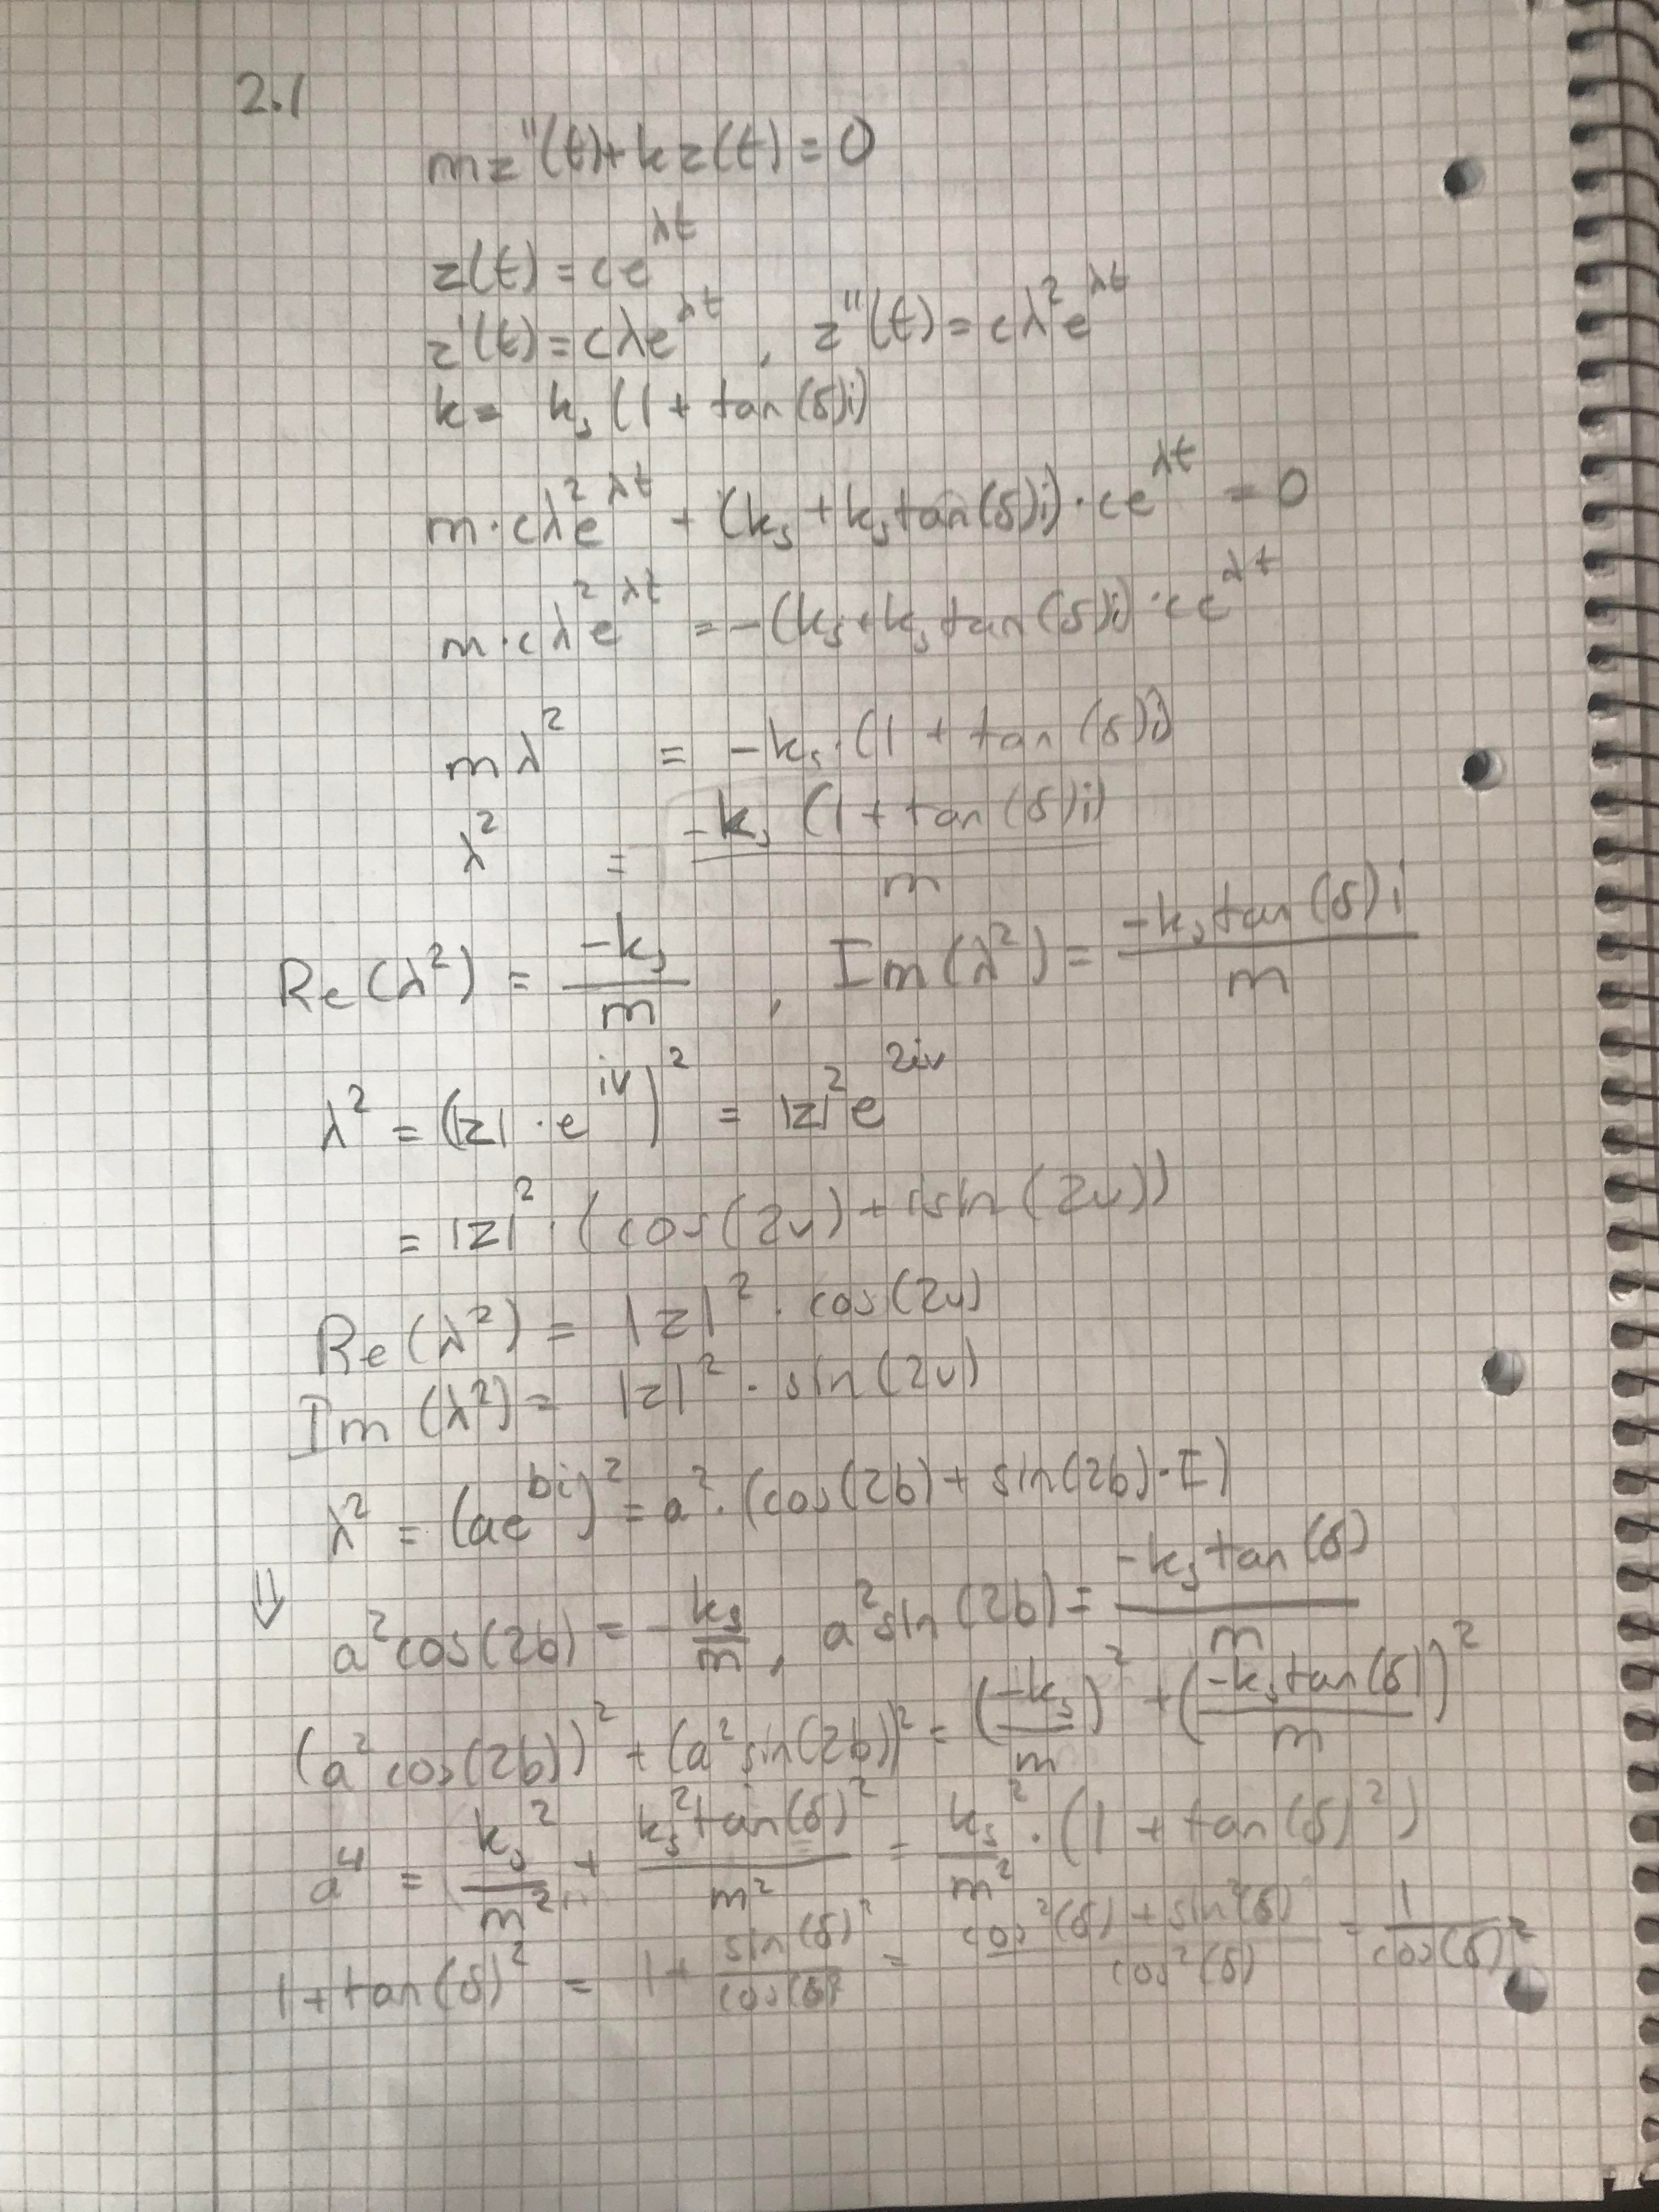 2.1
mz''(t)+kz(t)=0
z(t)=ce^{λt}
z'(t)=cλe^{λt}, z''(t)=cλ²e^{λt}
k= k_s(1+tan(δ)i)
m·cλ²e^{λt} + (k_s+k_s tan(δ)i)·ce^{λt} =0
m·cλ²e^{λt} =-(k_s+k_s tan(δ)i)·ce^{λt}
mλ² = -k_s·(1+tan(δ)i)
λ² = \frac{-k_s(1+tan(δ)i)}{m}
Re(λ²) = \frac{-k_s}{m}, Im(λ²) = \frac{-k_s tan(δ)i}{m}
λ² = (|z|·e^{iv})² = |z|²e^{2iv}
= |z|²·(cos(2v)+isin(2v))
Re(λ²) = |z|²·cos(2v)
Im(λ²) = |z|²·sin(2v)
λ² = (ae^{bi})² = a²·(cos(2b)+sin(2b)·I)
⇓ a²cos(2b) = -\frac{k_s}{m}, a²sin(2b) = \frac{-k_s tan(δ)}{m}
(a²cos(2b))²+(a²sin(2b))² = (\frac{-k_s}{m})²+(\frac{-k_s tan(δ)}{m})²
a⁴ = \frac{k_s²}{m²}+\frac{k_s² tan(δ)²}{m²} = \frac{k_s²}{m²}·(1+tan(δ)²)
1+tan(δ)² = 1+\frac{sin(δ)²}{cos(δ)²} = \frac{cos²(δ)+sin²(δ)}{cos²(δ)} = \frac{1}{cos(δ)²}